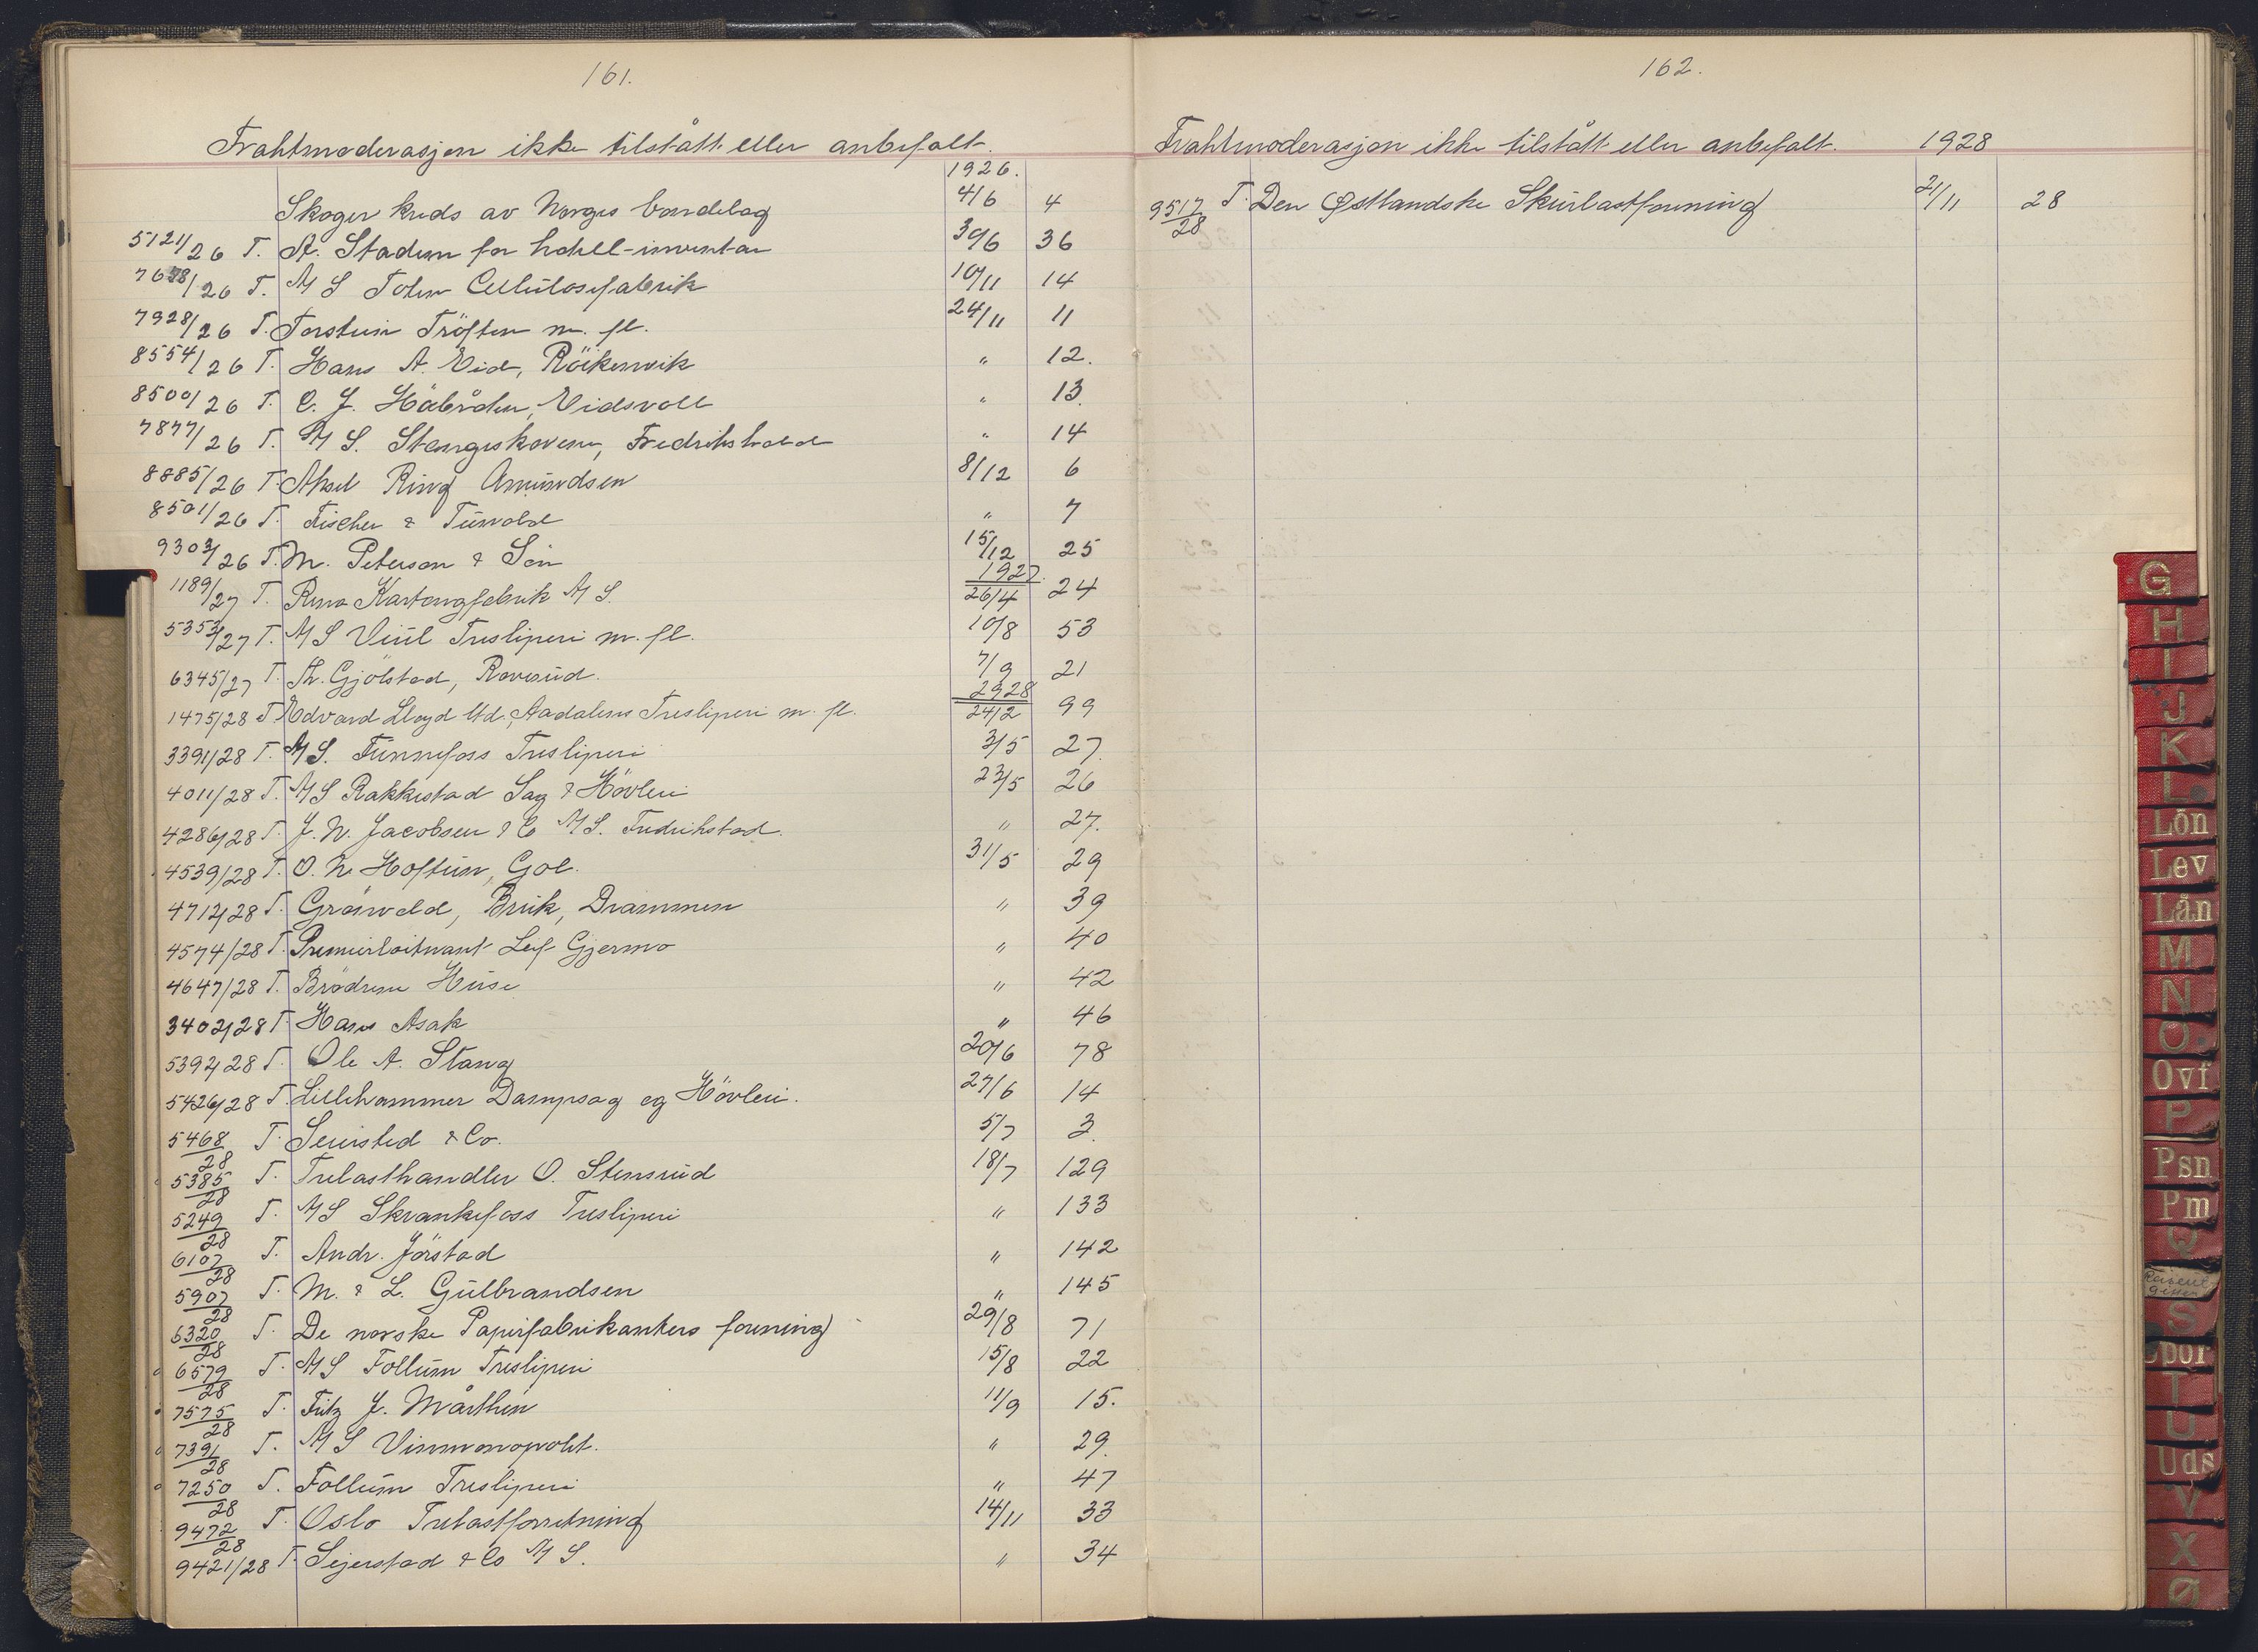 161.
Frahtmoderasjon ikke tilstått eller anbefalt.
1926.
Skoger kreds av Norges bondelag 4/6 4
5121/26 T. A. Stadum for hotell-inventar 30/6 36
/26 T. A/S Toten Cellulosefabrik 10/11 14
7928/26 T. Torstein Tröften m. fl. 24/11 11
8554/26 T. Hans A. Eid, Röikenvik " 12.
8500/26 T. O. J. Håbråten, Eidsvoll " 13.
7877/26 T. A/S. Stangeskovene, Fredrikshald " 14
8885/26 T. Aksel Ring Amundsen 8/12 6
8501/26 T. Fischer & Tunold " 7
9303/26 T. M. Peterson & Sön 15/12 25
1927.
1189/27 T. Rena Kartongfabrik A/S. 26/4 24
5353/27 T. A/S Viul Tresliperi m. fl. 10/8 53
6345/27 T. Th. Gjölstad, Roverud. 7/9 21
2928
1475/28 T. Edvard Lloyd Ltd., Aadalens Tresliperi m. fl. 24/2 99
3391/28 T. A/S. Funnefoss Tresliperi 3/5 27.
4011/28 T. A/S Rakkestad Sag & Hövleri 23/5 26
4286/28 T. J. N. Jacobsen & Co A/S. Fredrikstad. " 27.
4539/28 T. O. N. Hoftun, Gol. 31/5 29
4712/28 T. Grönvold, Bruk, Drammen " 39
4574/28 T. Premierlöitnant Leif Gjermo " 40
4647/28 T. Brödrene Huse " 42
3402/28 T. Hans Asak " 46
5392/28 T. Ole A. Stang 20/6 78
5426/28 T. Lillehammer Dampsag og Hövleri. 27/6 14
5468/28 T. & Co. 5/7 3.
5385/28 T. Trelasthandler O. Stensrud 18/7 129
5249/28 T. A/S Skrankefoss Tresliperi " 133
6107/28 T. Andr. Jörstad " 142
5907/28 T. M. & L. Gulbrandsen " 145
6320/28 T. De norske Papirfabrikanters forening 29/8 71
6579/28 T. A/S Follum Tresliperi 15/8 22
7575/28 T. J. 11/9 15.
7391/28 T. A/S Vinmonopolet. " 29.
7250/28 T. Follum Tresliperi " 47
9472/28 T. Oslo Trelastforretning 14/11 33
9421/28 T. Sejerstad & Co A/S. " 34
162.
Frahtmoderasjon ikke tilstått eller anbefalt. 1928
9517/28 T. Den Østlandske Skurlastforening 21/11 28
G
H
I
J
K
L
Lön
Lev
Lån
M
N
O
Ovf
P
Psn
Pm
Q
S
T
U
Uds
V
X
Ø